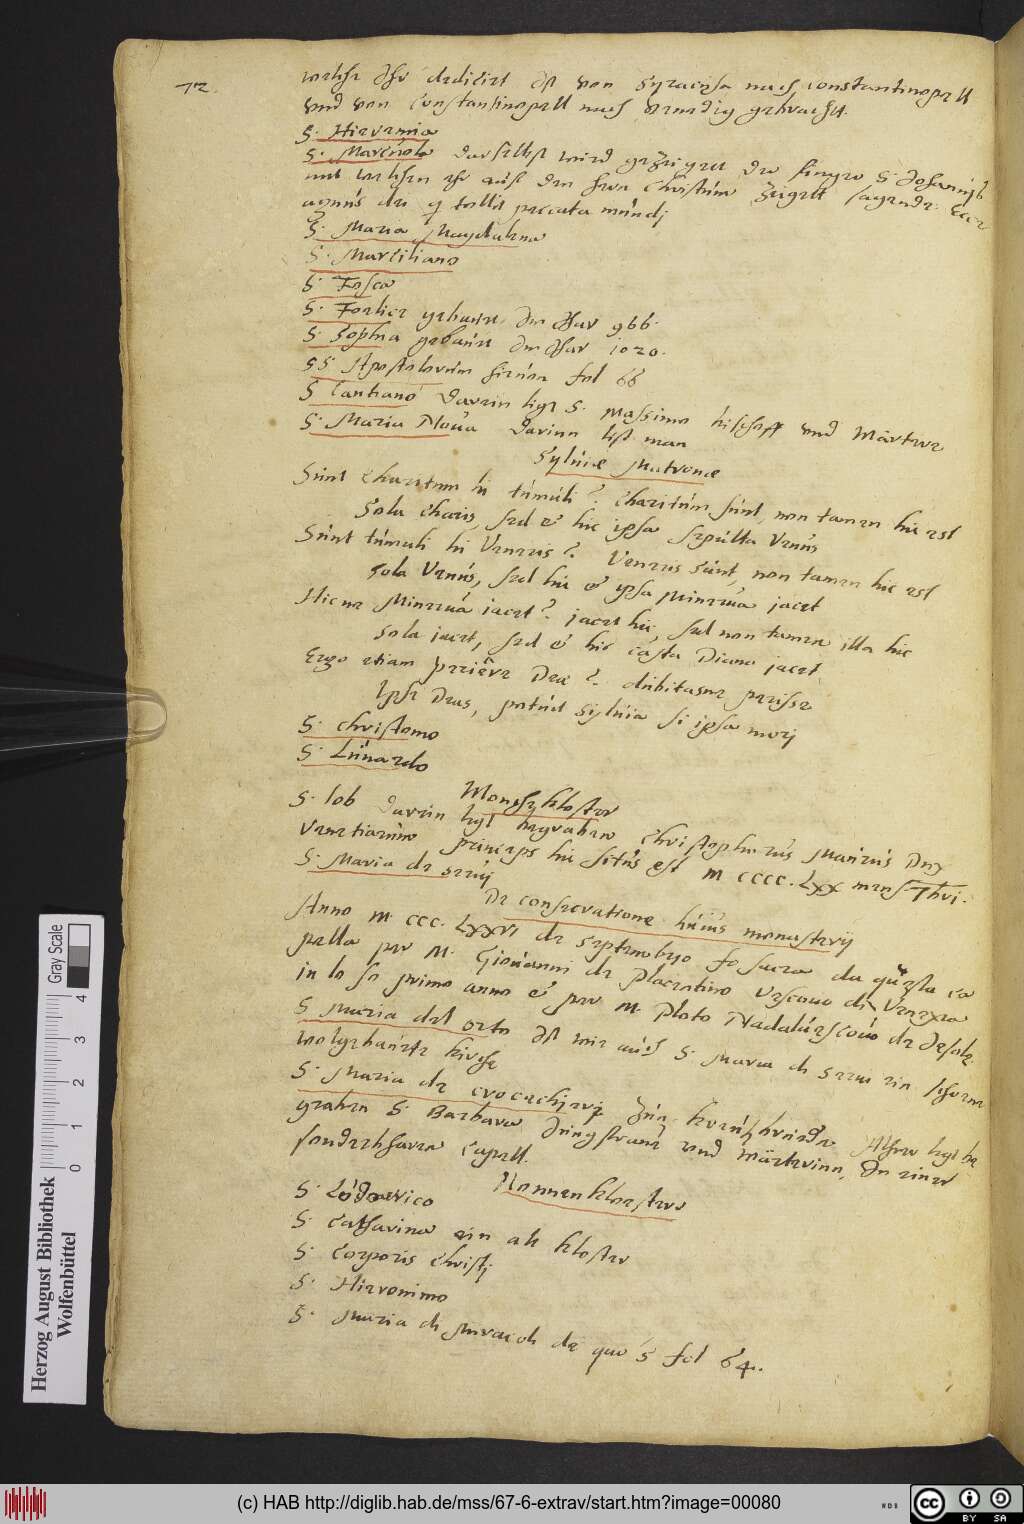 72.
welche ihr dedicirt ist von Syracusa nach constantinopell
vnd von Constantinopell nach Venedig gebracht.
S. Hieremia
S. Marcuola daselbst wird gezeiget der finger S. Johannis
mit welchen er auff den hern Christum zeigett sagende: Ecce
agnus dei q tollis peccata mundj
S. Maria Magdalena
S. Marciliano
S. Fosca
S. Foelice gebauet im Jhar 966.
S. Sophia gebauet im Jhar 1020.
SS Apostolorum hieuon fol 66
S Cantiano darein ligt S. Massimo bischoff vnd Märterer
S. Maria Noua darinn list man
Syluiæ Matronæ
Sunt Charitum hi tumuli? Charitum sunt, non tamen hic est
Sola Charis, sed & hic ipsa sepulta Venus
Sunt tumuli hi Veneris? Veneris sunt, non tamen hic est
sola Venus, sed hic & ypsa Minerua jacet
Hicne Minerua iacet? jacet hic, sed non tamen illa hic
sola iacet, sed & hic casta Diana jacet
Ergo etiam periere Deæ? dubitasne perisse
Ipse Deus, potuit Syluia si ipsa morj
S. Christomo
S. Lunardo
Monchsklöster
S. Iob darein ligt begraben Christophorus Maurus Dux
Venetiarum princeps hic situs est M CCCC. LXX mens.
S. Maria de seruij
De consecratione huius monasterij
Anno M. CCC. LXXVI de septembrjo fo sacra da questa ca
pella per M. Giouanni de Placentino Vescouo di Venexia
in lo so primo anno & per M. Ploto Nadal uescouo de Jesole
S Maria del orto ist wie auch S. Maria di Serui ein schoene
wolgebauete kirche
S. Maria de crocechierj zun kreutzbruder. Alhier ligt be
graben S. Barbara Jungfraue vnd Märterinn, In einer
sonderbharen Capell.
Nonnenkloester
S. Lodouico
S. Catharina ein alt kloster
S. Corporis Christj
S. Hieronimo
S. Maria di Miracoli de quo S fol 64.
Herzog August Bibliothek
Wolfenbüttel
Gray Scale
0 1 2 3 4
(c) HAB http://diglib.hab.de/mss/67-6-extrav/start.htm?image=00080
WDB
cc BY SA